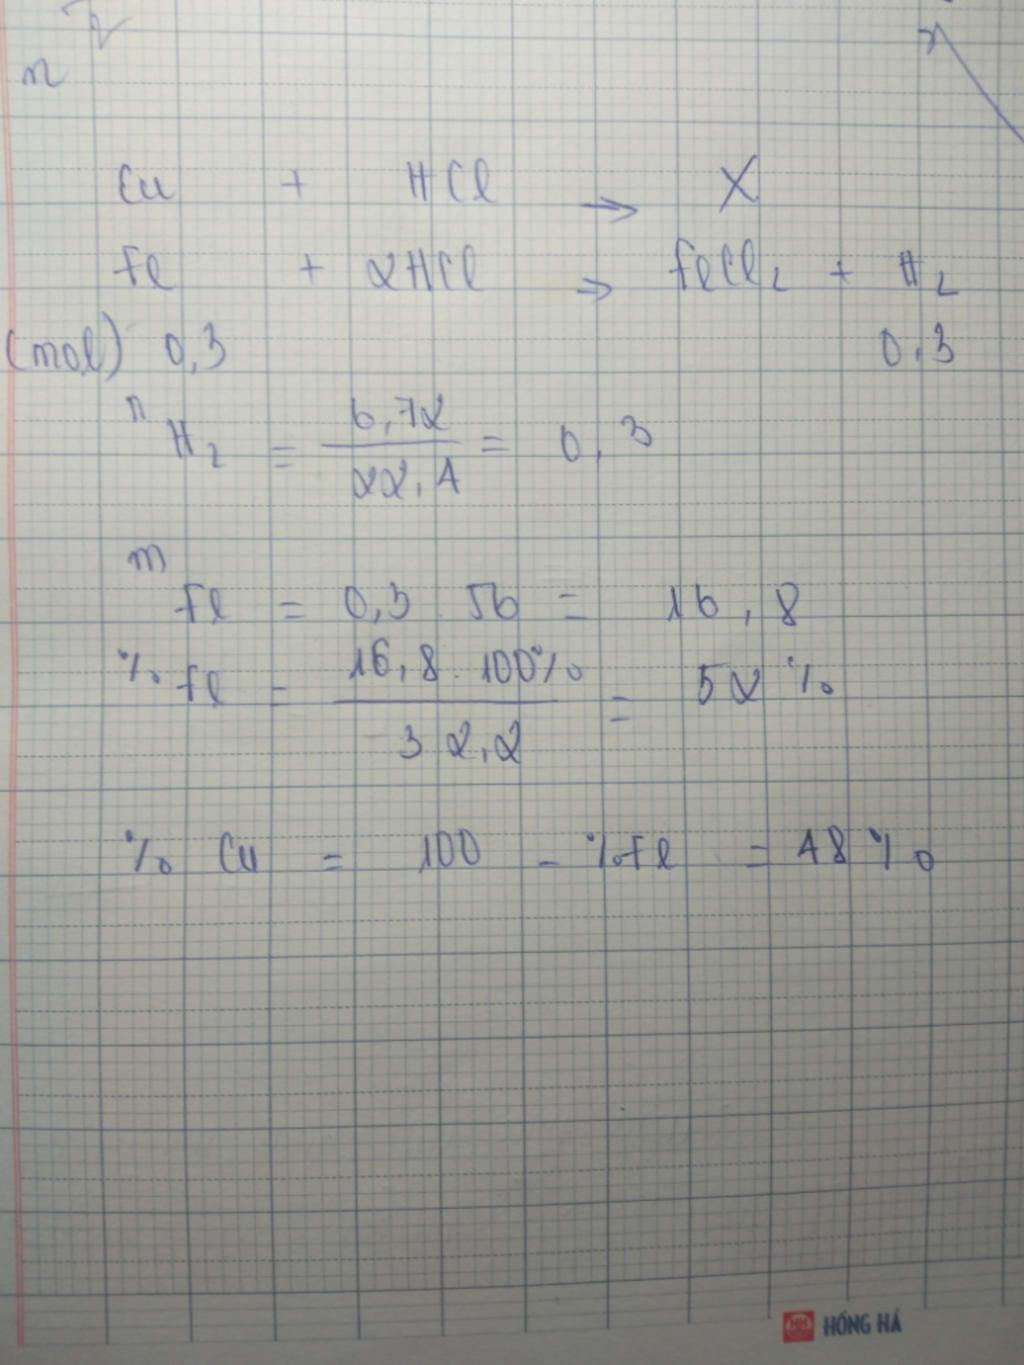 n
Cu + HCl → X
Fe + 2HCl → FeCl2 + H2
(mol) 0,3 0,3
nH2 = 6,72 / 22,4 = 0,3
mFe = 0,3 . 56 = 16,8
%Fe = 16,8 . 100% / 32,2 = 52%
% Cu = 100 - %Fe = 48%
HH HỒNG HÀ